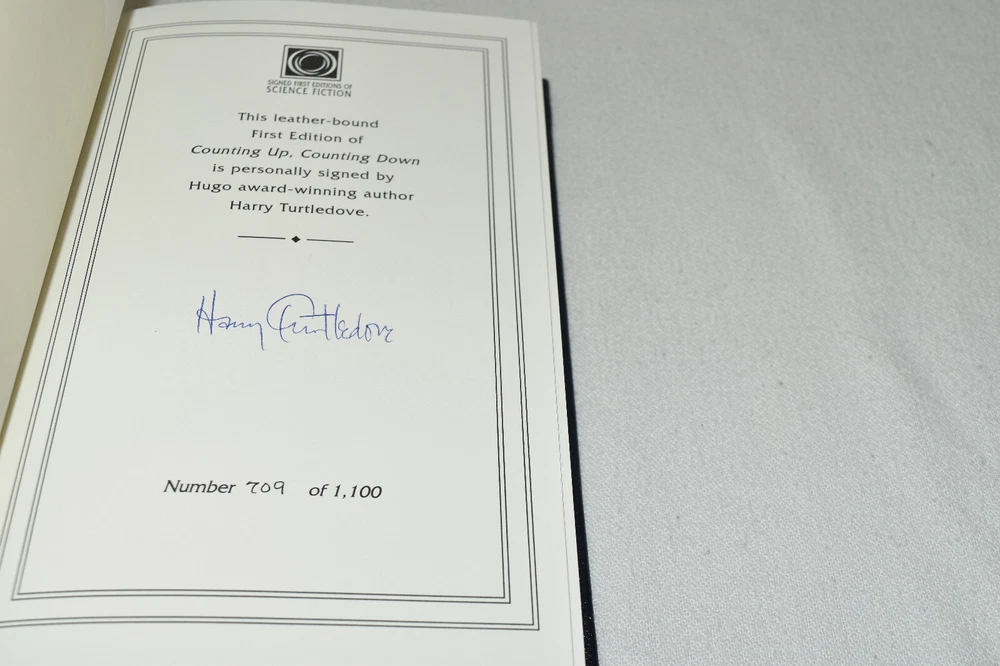 SIGNED FIRST EDITIONS OF
SCIENCE FICTION
This leather-bound
First Edition of
Counting Up, Counting Down
is personally signed by
Hugo award-winning author
Harry Turtledove.
Harry Turtledove
Number 709 of 1,100